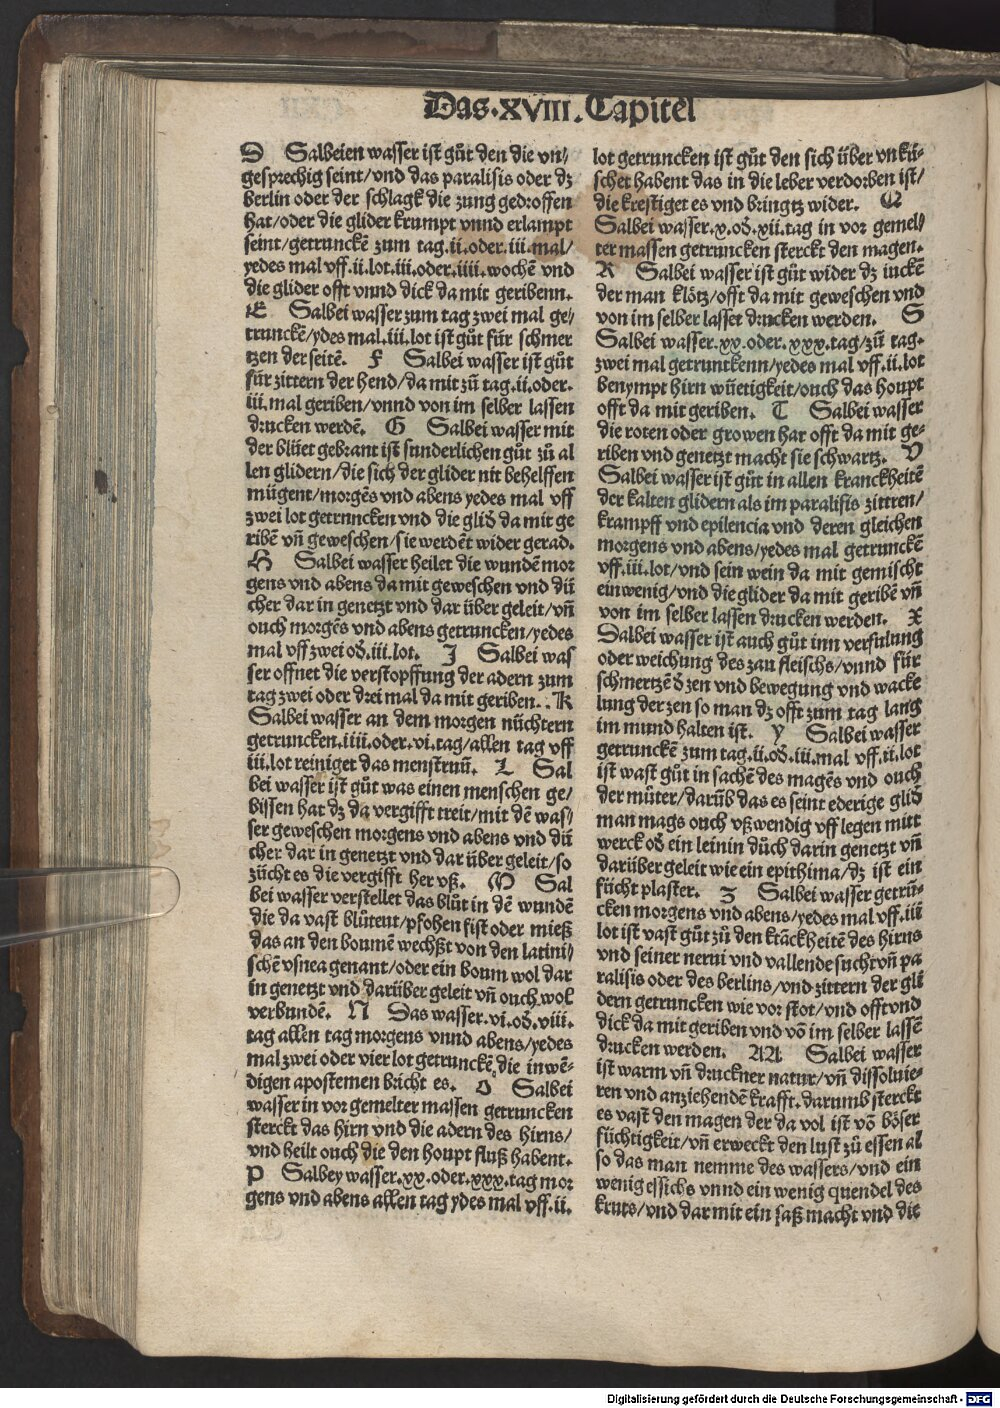 Das.XVIII.Capitel
D Salbeien wasser ist gůt den die vn/
gesprechig seint/vnd das paralisis oder dz
berlin oder der schlagk die zung gedroffen
hat/oder die glider krumpt vnnd erlampt
seint/getrunckē zum tag.ii.oder.iii.mal/
yedes mal vff.ii.lot.iii.oder.iiii.wochē vnd
die glider offt vnnd dick da mit geribenn.
E Salbei wasser zum tag zwei mal ge/
trunckē/ydes mal.iii.lot ist gůt für schmer
tzen der seitē. F Salbei wasser ist gůt
für zittern der hend/da mit zů tag.ii.oder.
iii.mal geriben/vnnd von im selber lassen
drucken werdē. G Salbei wasser mit
der blüet gebrant ist sunderlichen gůt zů al
len glidern/die sich der glider nit behelffen
mügent/morgēs vnd abens yedes mal vff
zwei lot getruncken vnd die glid̄ da mit ge
ribē vn̄ geweschen/sie werdēt wider gerad.
H Salbei wasser heilet die wundē mor
gens vnd abens da mit geweschen vnd dü
cher dar in genetzt vnd dar über geleit/vn̄
ouch morgēs vnd abens getruncken/yedes
mal vff zwei od̄.iii.lot. I Salbei was
ser offnet die verstopffung der adern zum
tag zwei oder drei mal da mit geriben. K
Salbei wasser an dem morgen nüchtern
getruncken.iiii.oder.vi.tag/allen tag vff
iii.lot reiniget das menstruū. L Sal
bei wasser ist gůt was einen menschen ge/
bissen hat dz da vergifft treit/mit dē was/
ser geweschen morgens vnd abens vnd dü
cher dar in genetzt vnd dar über geleit/so
zücht es die vergifft her vß. M Sal
bei wasser verstellet das blůt in dē wundē
die da vast blůtent/pfohen fist oder mieß
das an den boumē wechßt von den latini/
schē vsnea genant/oder ein boum wol dar
in genetzt vnd darüber geleit vn̄ ouch wol
verbundē. N Das wasser.vi.od̄.viii.
tag allen tag morgens vnnd abens/yedes
mal zwei oder vier lot getrunckē die inwē-
digen apostemen bricht es. O Salbei
wasser in vor gemelter massen getruncken
sterckt das hirn vnd die adern des hirns/
vnd heilt ouch die den houpt fluß habent.
P Salbey wasser.xx.oder.xxx.tag mor
gens vnd abens allen tag ydes mal vff.ii.
lot getruncken ist gůt den sich über vnkü-
schet habent das in die leber verdorben ist/
die krestiget es vnd bringtz wider. Q
Salbei wasser.x.od̄.xii.tag in vor gemel/
ter massen getruncken sterckt den magen.
R Salbei wasser ist gůt wider dz iuckē
der man klötz/offt da mit geweschen vnd
von im selber lasset drucken werden. S
Salbei wasser.xx.oder.xxx.tag/zů tag.
zwei mal getrunckenn/yedes mal vff.ii.lot
benympt hirn wüetigkeit/ouch das houpt
offt da mit geriben. T Salbei wasser
die roten oder growen har offt da mit ge-
riben vnd genetzt macht sie schwartz. V
Salbei wasser ist gůt in allen kranckheitē
der kalten glidern als im paralisis zittren/
krampff vnd epilencia vnd deren gleichen
morgens vnd abens/yedes mal getrunckē
vff.iii.lot/vnd sein wein da mit gemischt
ein wenig/vnd die glider da mit geribē vn̄
von im selber lassen drucken werden. X
Salbei wasser ist auch gůt inn versulung
oder weichung des zan fleischs/vnnd für
schmertzē d̄ zen vnd bewegung vnd wacke
lung der zen so man dz offt zum tag lang
im mund halten ist. Y Salbei wasser
getrunckē zum tag.ii.od̄.iii.mal vff.ii.lot
ist wast gůt in sachē des magēs vnd ouch
der můter/darūb das es seint ederige glid̄
man mags ouch vßwendig vff legen mitt
werck od̄ ein leinin důch darin genetzt vn̄
darüber geleit wie ein epithima/dz ist ein
fücht plaster. Z Salbei wasser getrū-
cken morgens vnd abens/yedes mal vff.iii
lot ist vast gůt zů den krāckheitē des hirns
vnd seiner nerui vnd vallende sucht vn̄ pa
ralisis oder des berlins/vnd zittern der gli
dern getruncken wie vor stot/vnd offt vnd
dick da mit geriben vnd vō im selber lassē
drucken werden. AA Salbei wasser
ist warm vn̄ druckner natur/vn̄ dissoluie-
ren vnd anziehendē krafft.darumb sterckt
es vast den magen der da vol ist vō böser
füchtigkeit/vn̄ erweckt den lust zů essen al
so das man nemme des wassers/vnd ein
wenig essichs vnnd ein wenig quendel des
kruts/vnd dar mit ein saß macht vnd die
Digitalisierung gefördert durch die Deutsche Forschungsgemeinschaft - DFG